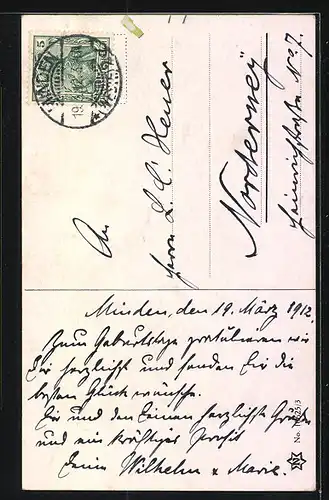 5
MINDEN
19.
An
Herrn L. C. Heuer
Norderney
Heinrichstraße No 7.
Minden, den 19. März 1912.
Zum Geburtstage gratulieren wir
Dir herzlichst und senden Dir die
besten Glückwünsche.
Dir und den Deinen herzlichste Grüße
und ein kräftiges Prosit
Deine Wilhelm u Marie.